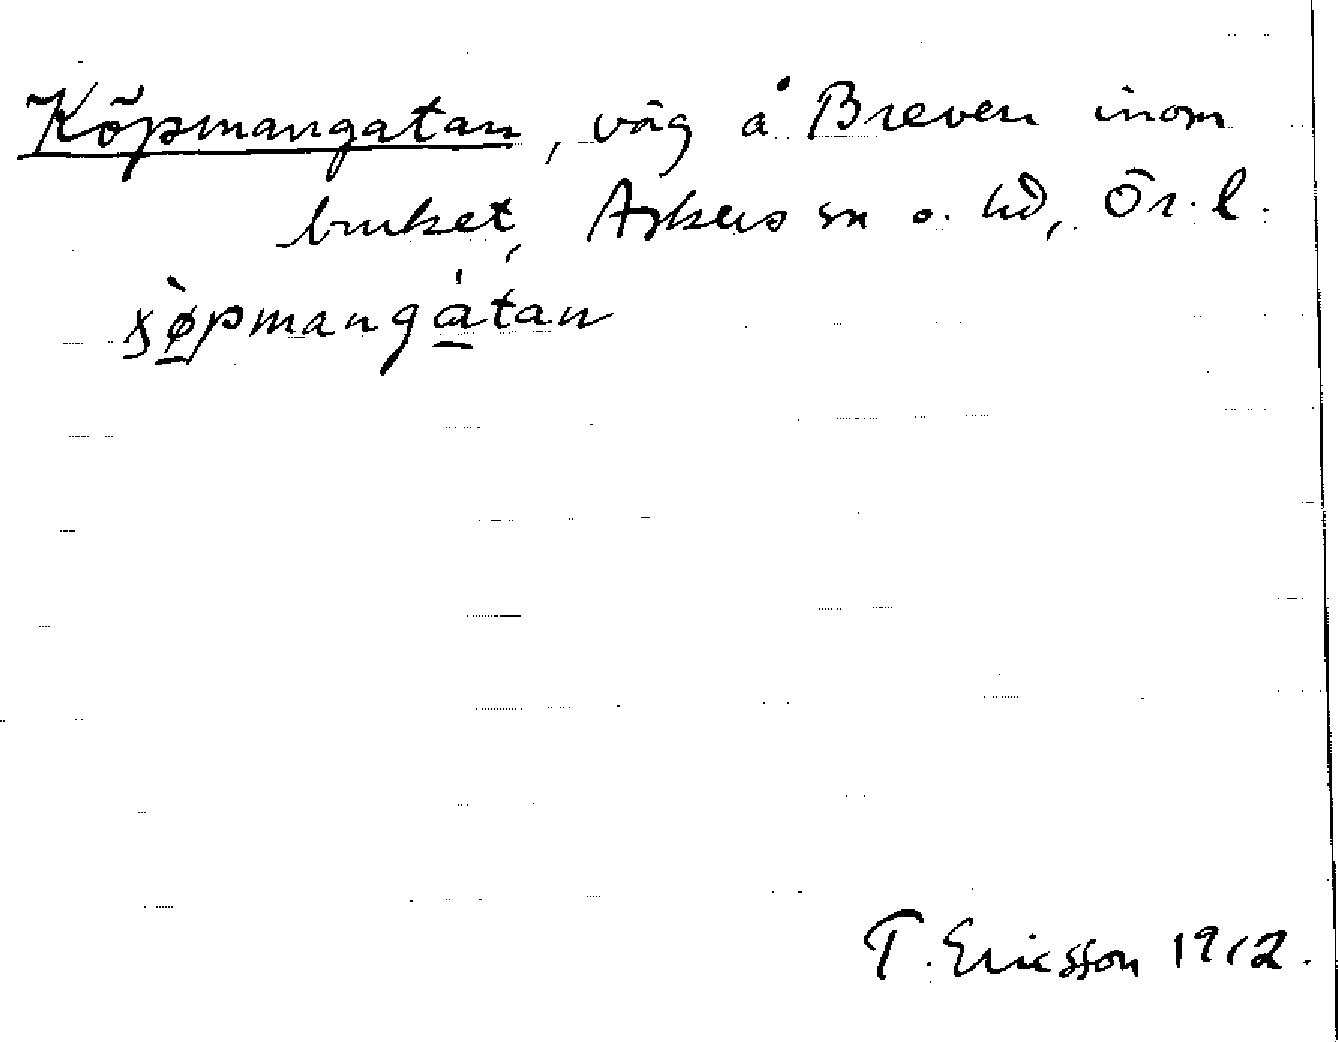 Köpmangatan, väg å Breven inom
bruket, Askers sn o. hd, Ör. l.
şø̀pmangátan
T. Ericsson 1912.